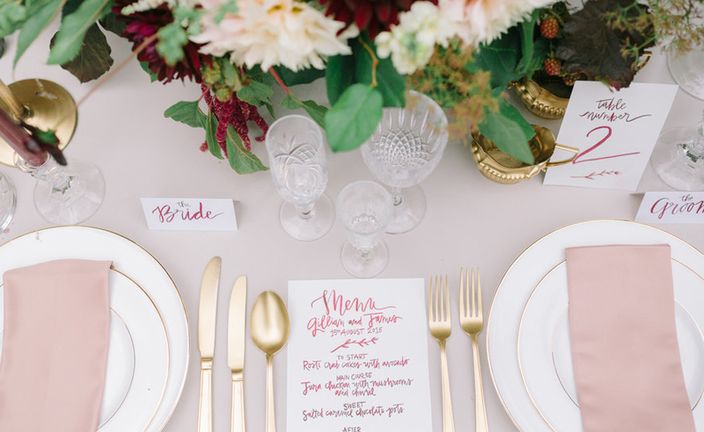 the
Bride
table
number
2
the
Groom
Menu
Gillian and James
15TH AUGUST 2015
TO START
Rosti crab cakes with avocado
MAIN COURSE
Tuna chicken with mushrooms
and chard
SWEET
Salted caramel chocolate pots
AFTER